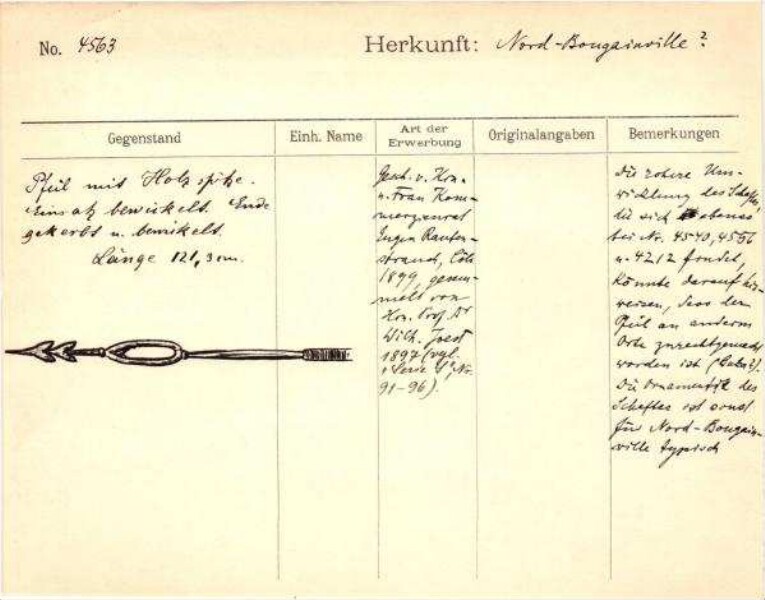 No. 4563
Herkunft: Nord-Bougainville?
Gegenstand
Einh. Name
Art der
Erwerbung
Originalangaben
Bemerkungen
Pfeil mit Holzspitze.
Einsatz bewickelt. Ende
gekerbt u. bewickelt.
Länge 121,3 cm.
Gesch. v. Hrn.
u. Frau Kom-
merzienrat
Eugen Rauten-
strauch, Cöln
1899, gesam-
melt von
Hrn. Prof. Dr
Wilh. Joest
1897 (vgl.
"Serie I", Nr.
91-96).
Die rohere Um-
wicklung des Schaftes,
die sich ebenso
bei Nr. 4540, 4556
u. 4212 findet,
könnte darauf hin-
weisen, dass der
Pfeil an anderm
Orte zurechtgemacht
worden ist (Buka?).
Die Ornamentik des
Schaftes ist sonst
für Nord-Bougain-
ville typisch